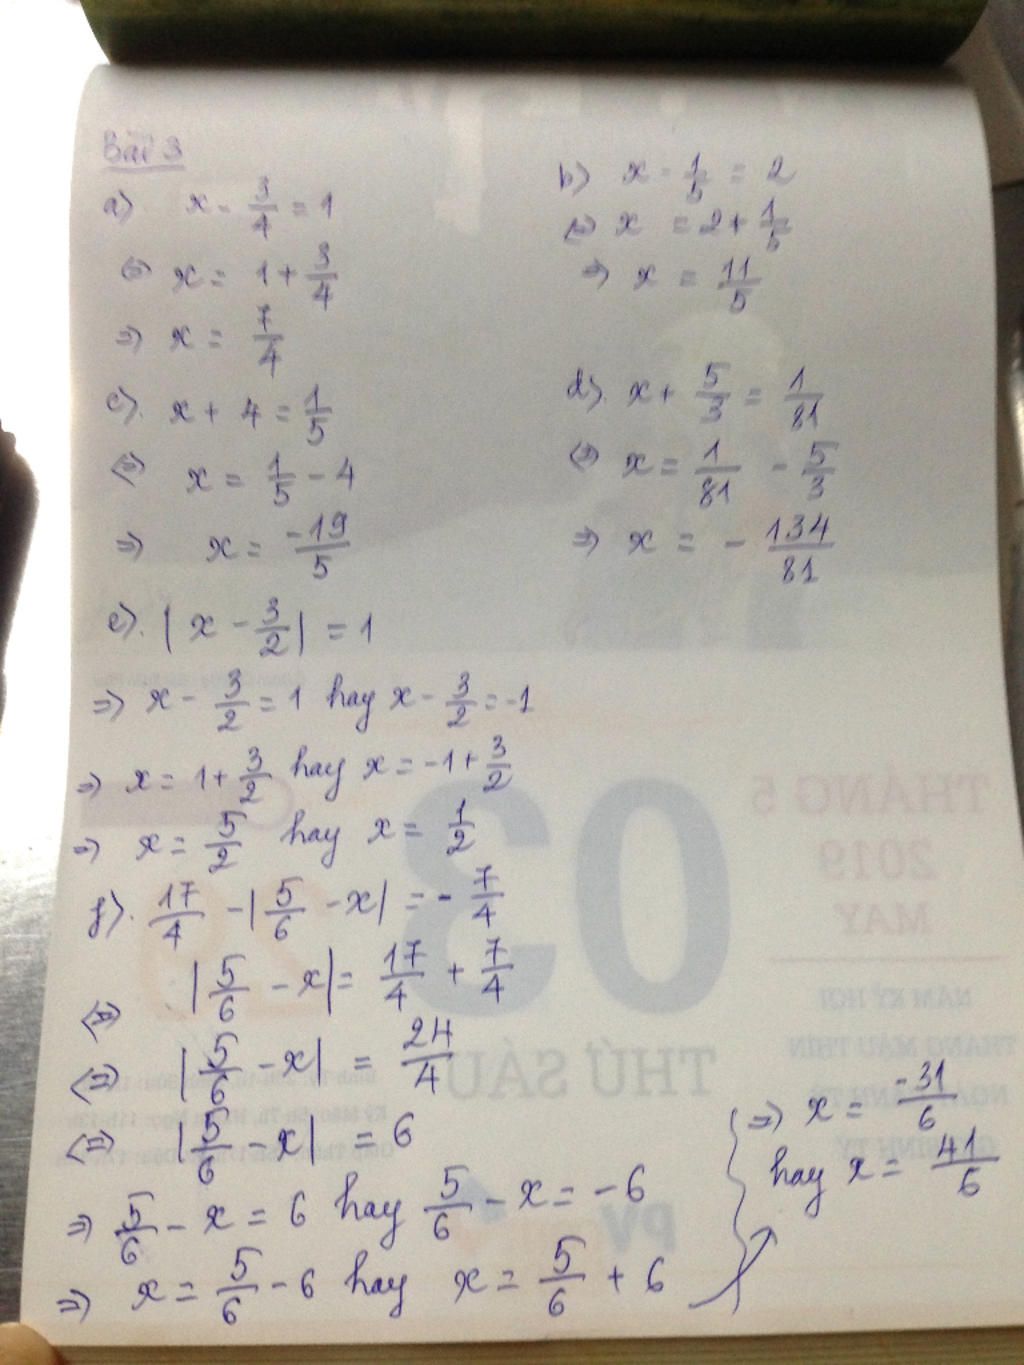 Bài 3
a) x - 3/4 = 1
(=) x = 1 + 3/4
=) x = 7/4
b) x - 1/5 = 2
(=) x = 2 + 1/5
=) x = 11/5
c). x + 4 = 1/5
(=) x = 1/5 - 4
=) x = -19/5
d). x + 5/3 = 1/81
(=) x = 1/81 - 5/3
=) x = - 134/81
e). | x - 3/2 | = 1
=) x - 3/2 = 1 hay x - 3/2 = -1
=) x = 1 + 3/2 hay x = -1 + 3/2
=) x = 5/2 hay x = 1/2
f). 17/4 - | 5/6 - x | = - 7/4
(=) | 5/6 - x | = 17/4 + 7/4
(=) | 5/6 - x | = 24/4
(=) | 5/6 - x | = 6
=) 5/6 - x = 6 hay 5/6 - x = -6
=) x = 5/6 - 6 hay x = 5/6 + 6
=) x = -31/6
hay x = 41/6
THÁNG 5
2019
MAY
03
NĂM KỶ HỢI
THÁNG MẬU THÌN
THỨ SÁU
PV